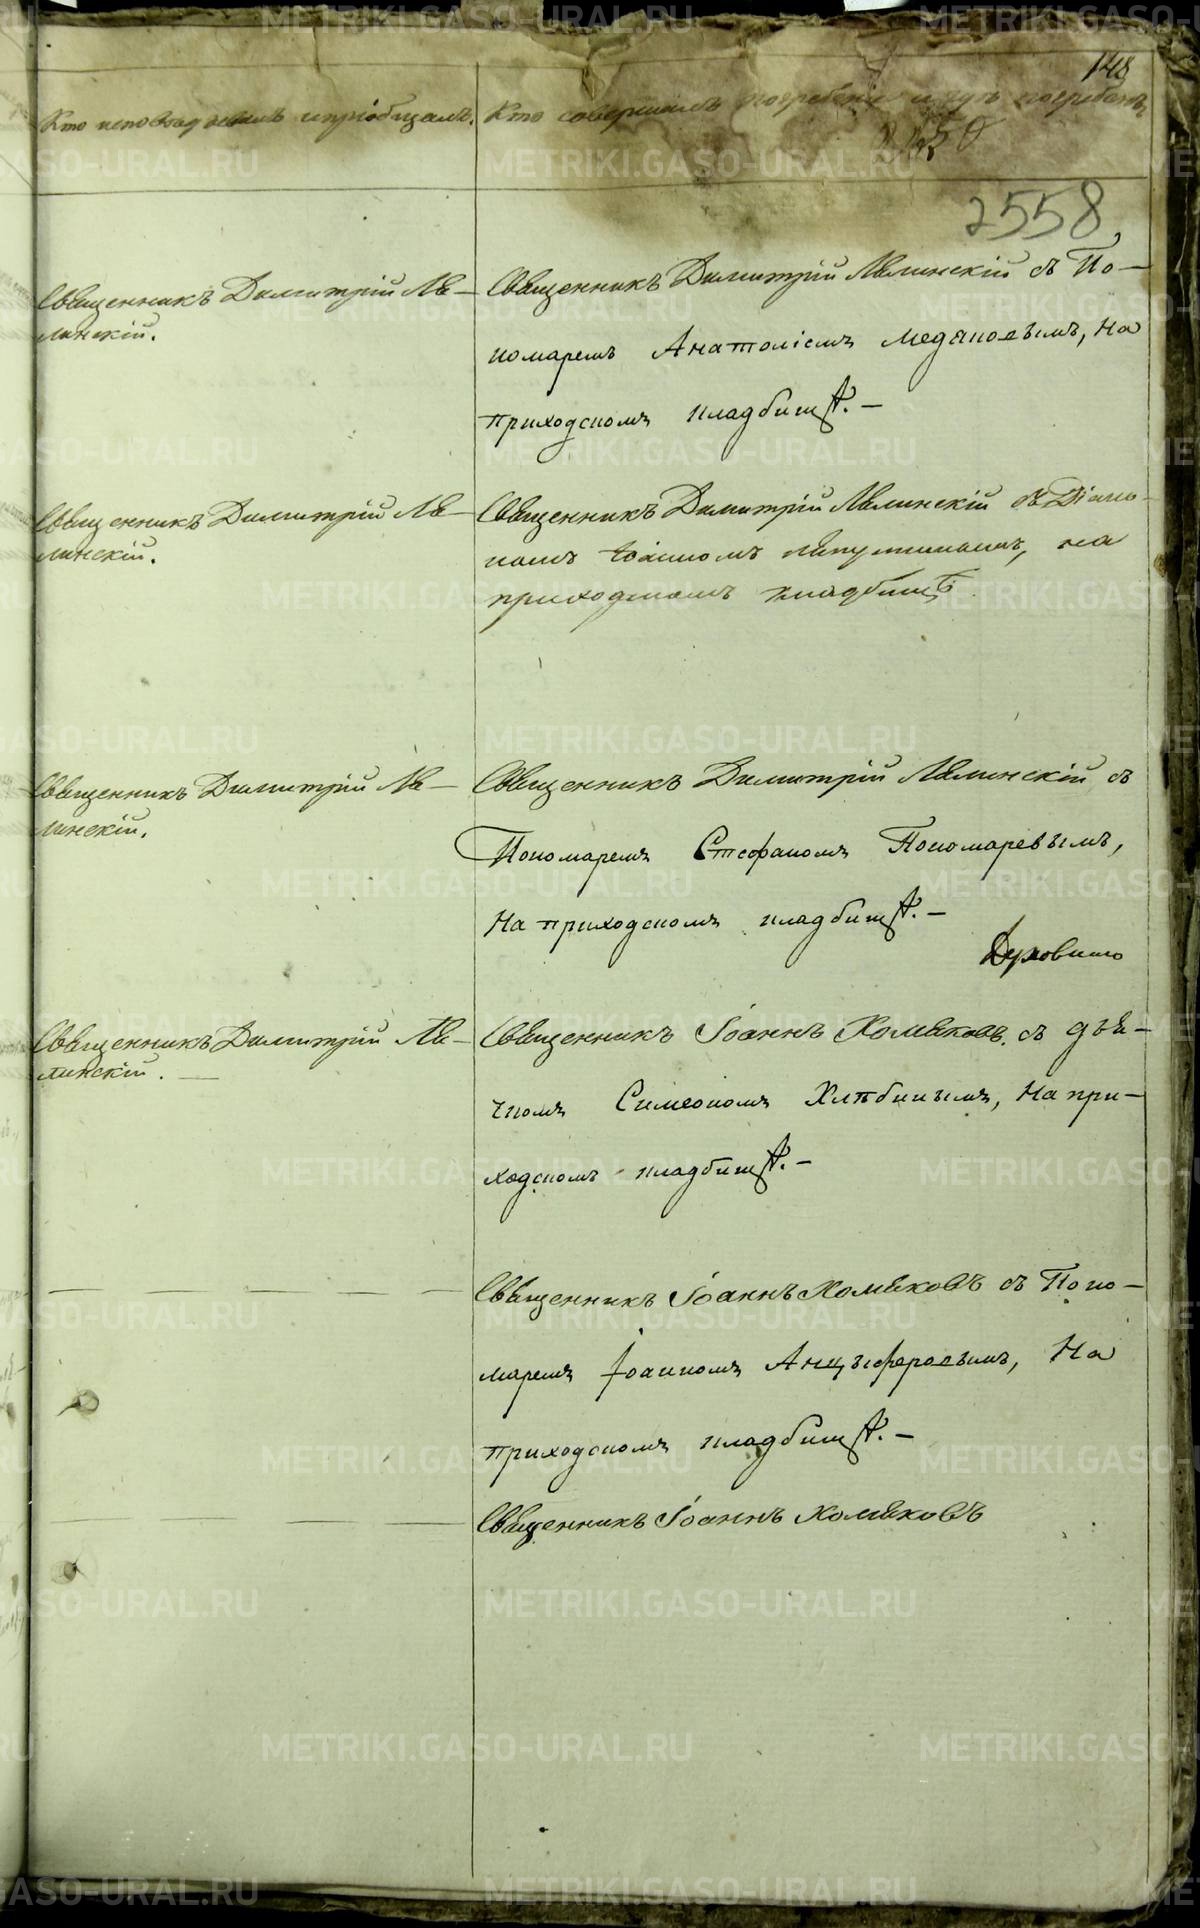 148
Кто исповѣдывалъ и пріобщалъ.
Кто совершалъ погребеніе и гдѣ погребены
2558
Священникъ Димитрій Яв–
линскій.
Священникъ Димитрій Явлинскій съ По–
номаремъ Анатоліемъ Медяновымъ, на
приходскомъ кладбищѣ.–
Священникъ Димитрій Яв–
линскій.
Священникъ Димитрій Явлинскій съ Діако–
номъ Іоанномъ на
приходскомъ кладбищѣ
Священникъ Димитрій Яв–
линскій.
Священникъ Димитрій Явлинскій съ
Пономаремъ Стефаномъ Пономаревымъ,
на приходскомъ кладбищѣ.–
Духовишо
Священникъ Димитрій Яв–
линскій. —
Священникъ Іоаннъ Хомяковъ. съ дья–
чкомъ Симеономъ Хлѣбинымъ, на при–
ходскомъ кладбищѣ.–
Священникъ Іоаннъ Хомяковъ съ Поно–
маремъ Іоанномъ Анцыферовымъ, на
приходскомъ кладбищѣ.–
Священникъ Іоаннъ Хомяковъ
METRIKI.GASO-URAL.RU